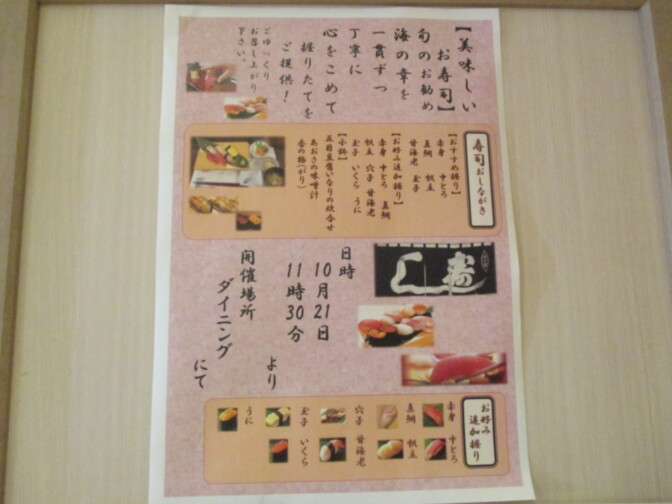 【美味しい
お寿司】
旬のお勧め
海の幸を
一貫ずつ
丁寧に
心をこめて
握りたてを
ご提供！
ごゆっくり
お召し上がり
下さい。
寿司おしながき
【おすすめ握り】
赤身 中とろ
真鯛 帆立
甘海老 玉子
【お好み追加握り】
赤身 中とろ 真鯛
帆立 穴子 甘海老
玉子 いくら うに
【小鉢】
五目豆腐いなりの炊合せ
あおさの味噌汁
香の物(がり)
寿し
日時
10月21日
11時30分
より
開催場所
ダイニング
にて
お好み
追加握り
赤身 中とろ
真鯛 帆立
穴子 甘海老
玉子 いくら
うに